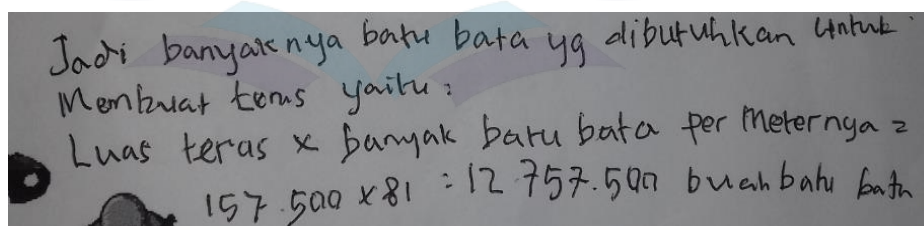 Jadi banyaknya batu bata yg dibutuhkan untuk
Membuat teras yaitu :
Luas teras x banyak batu bata per meternya =
157.500 x 81 = 12.757.500 buah batu bata